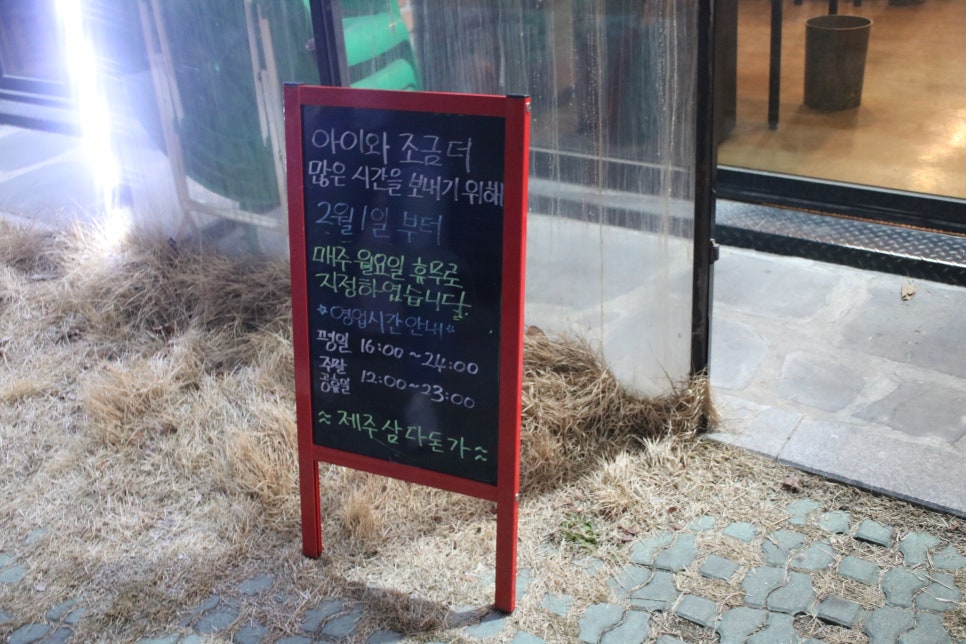 아이와 조금 더
많은 시간을 보내기 위해
2월 1일 부터
매주 월요일 휴무로
지정하였습니다.
*영업시간 안내*
평일 16:00~24:00
주말
공휴일 12:00~23:00
≈제주삼다돈가≈